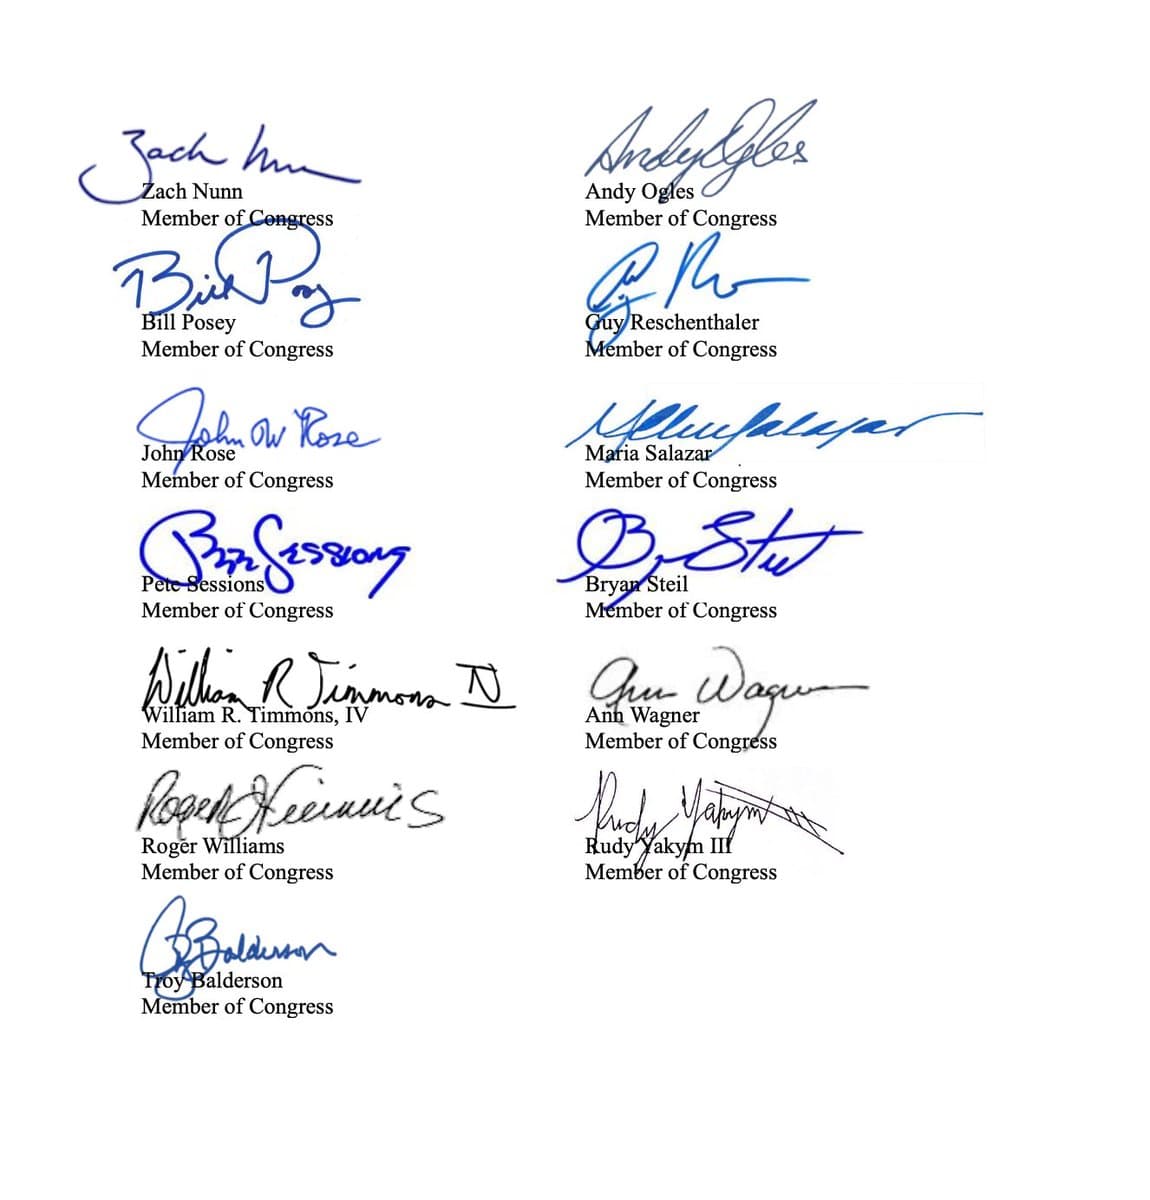 Zach Nunn
Zach Nunn
Member of Congress
Andy Ogles
Andy Ogles
Member of Congress
Bill Posey
Bill Posey
Member of Congress
Guy Reschenthaler
Member of Congress
John W Rose
John Rose
Member of Congress
Salazar
Maria Salazar
Member of Congress
Pete Sessions
Pete Sessions
Member of Congress
Bryan Steil
Bryan Steil
Member of Congress
William R Timmons IV
William R. Timmons, IV
Member of Congress
Ann Wagner
Ann Wagner
Member of Congress
Roger Williams
Roger Williams
Member of Congress
Rudy Yakym III
Rudy Yakym III
Member of Congress
Balderson
Troy Balderson
Member of Congress